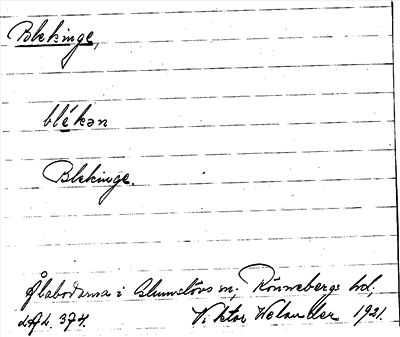 Blekinge,
blékən
Blekinge.
Ålabodarna i Glumslövs sn, Rönnebergs hd,
LAL. 374. Viktor Welander 1921.